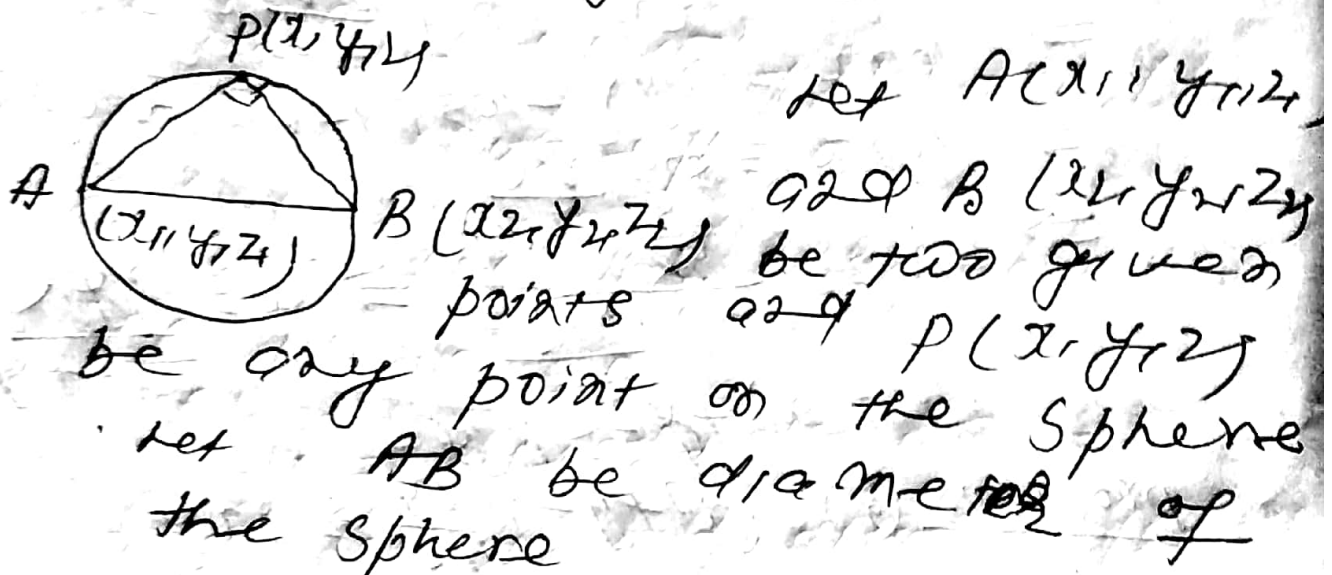 P(x, y, z)
Let A(x1, y1, z1
A
and B (x2, y2, z2)
(x1, y1, z1)
B (x2, y2, z2)
be two given
points and P(x, y, z)
be any point on the sphere
Let AB be diameter of
the sphere